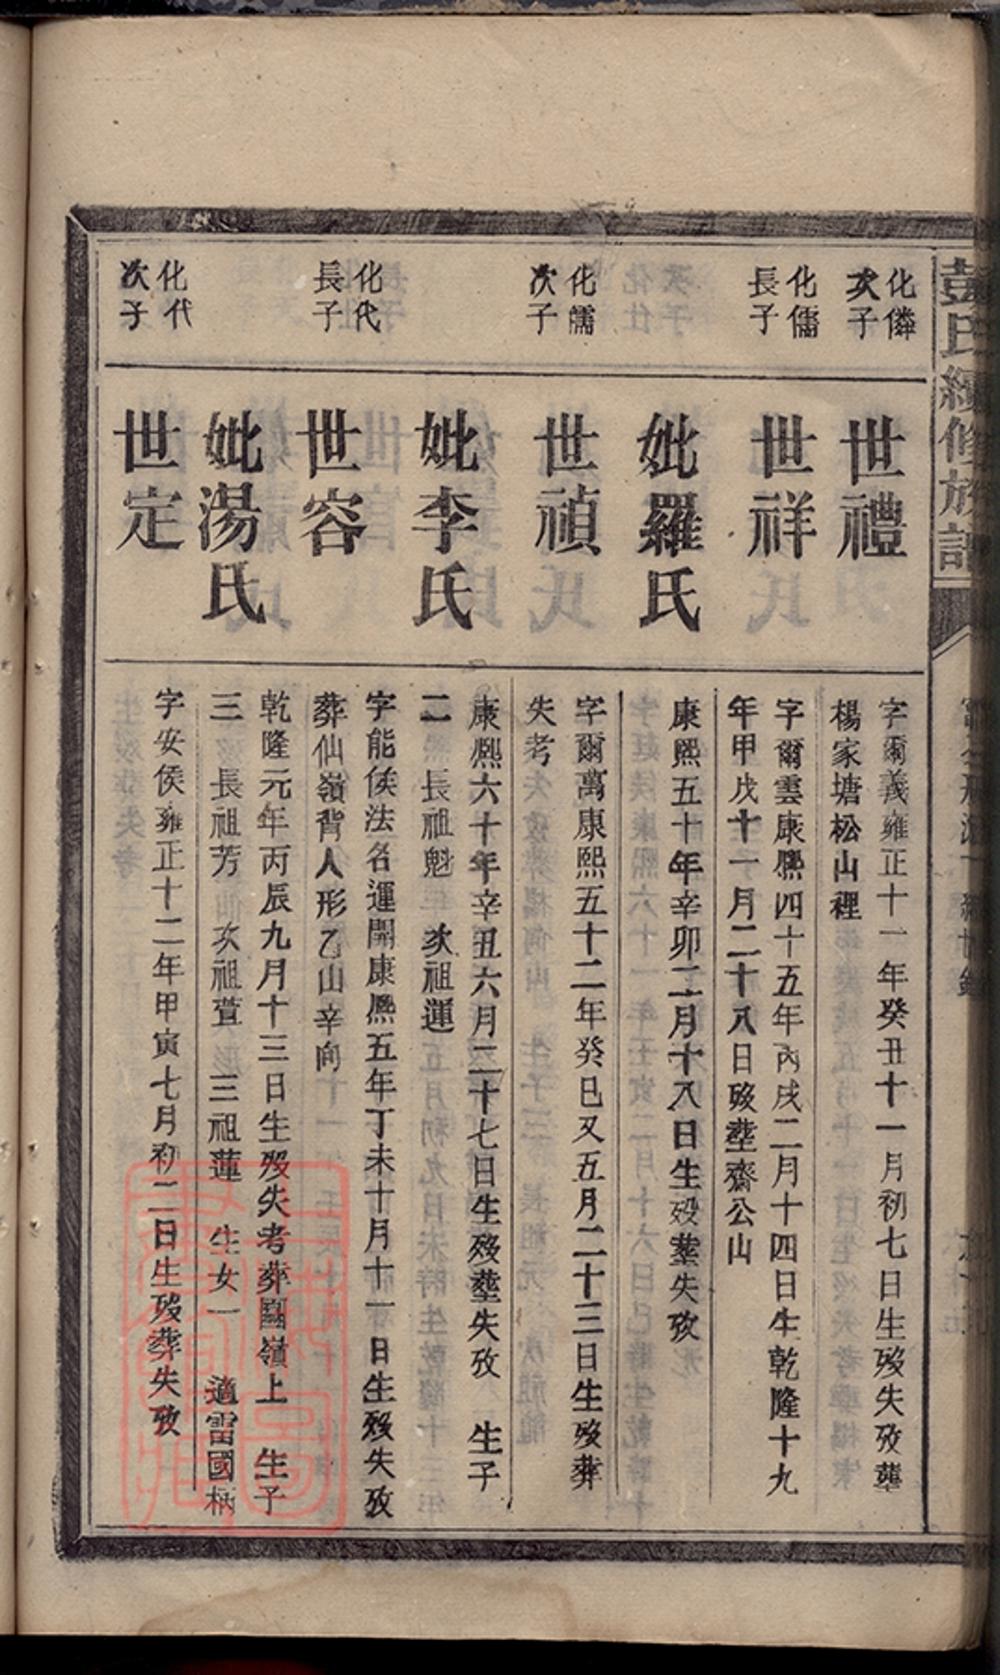 彭氏續修族譜
化僯
次子
世禮
字爾義雍正十一年癸丑十一月初七日生歿失攷塟
楊家塘松山裡
化儒
長子
世祥
字爾雲康熈四十五年丙戌二月十四日生乾隆十九
年甲戌十一月二十八日歿塟齋公山
妣羅氏
康熈五十年辛卯二月十八日生歿塟失攷
化儒
次子
世禎
字爾萬康熙五十二年癸巳又五月二十三日生歿葬
失考
妣李氏
康熈六十年辛丑六月二十七日生歿塟失攷 生子
二 長祖魁 次祖運
化代
長子
世容
字能侯法名運開康熈五年丁未十月十一日生歿失攷
葬仙嶺背人形乙山辛向
妣湯氏
乾隆元年丙辰九月十三日生歿失考葬圖嶺上 生子
三 長祖芳 次祖萱 三祖蓮 生女一 適雷國柄
化代
次子
世定
字安侯雍正十二年甲寅七月初二日生歿葬失攷